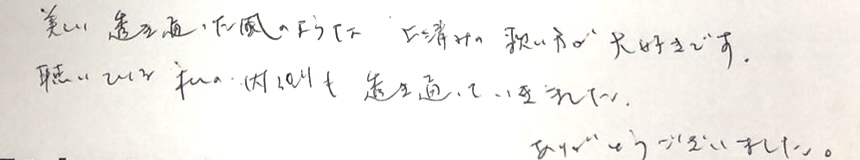 美しい 透き通った風のような 上澄みの 歌い方が 大好きです.
聴いている 私の 内側も 透き通っていきました.
ありがとうございました。